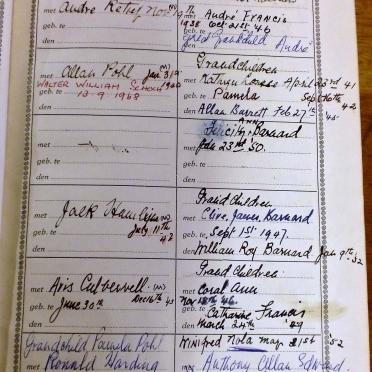 met André Retief Nov 19th (M)
1938
geb. te
den
met André Francis
Oct 21st '46
geb. te
Great Grandchild André
den
met Allan Pohl Jan 31st (M)
1940
WALTER WILLIAM SCHOCH
geb. te 13-9-1968
den
Grandchildren
met Kathryn April 23rd 41
geb. te Pamela Sept 16th 42
den Allan Barrett Feb 27th '45
met
geb. te
den
Felicity Ann Barnard
met Jan 23rd 50.
geb. te
den
met Jack Hamlijn (M)
July 11th
geb. te 42
den
Grand Children
met Clive James Barnard
geb. te Sept 1st 1947.
den William Roy Barnard Jan 9th 52
met Avis Culverwell (M)
Dec 16th 45
geb. te
June 30th
den
Grand Children
met Coral Ann
Nov 18th 46
geb. te Catharine Francis
den March 24th 49
Grandchild Pamela Pohl
met Ronald Harding
WINIfred Nola may 21st 52
met Anthony Allan Edward